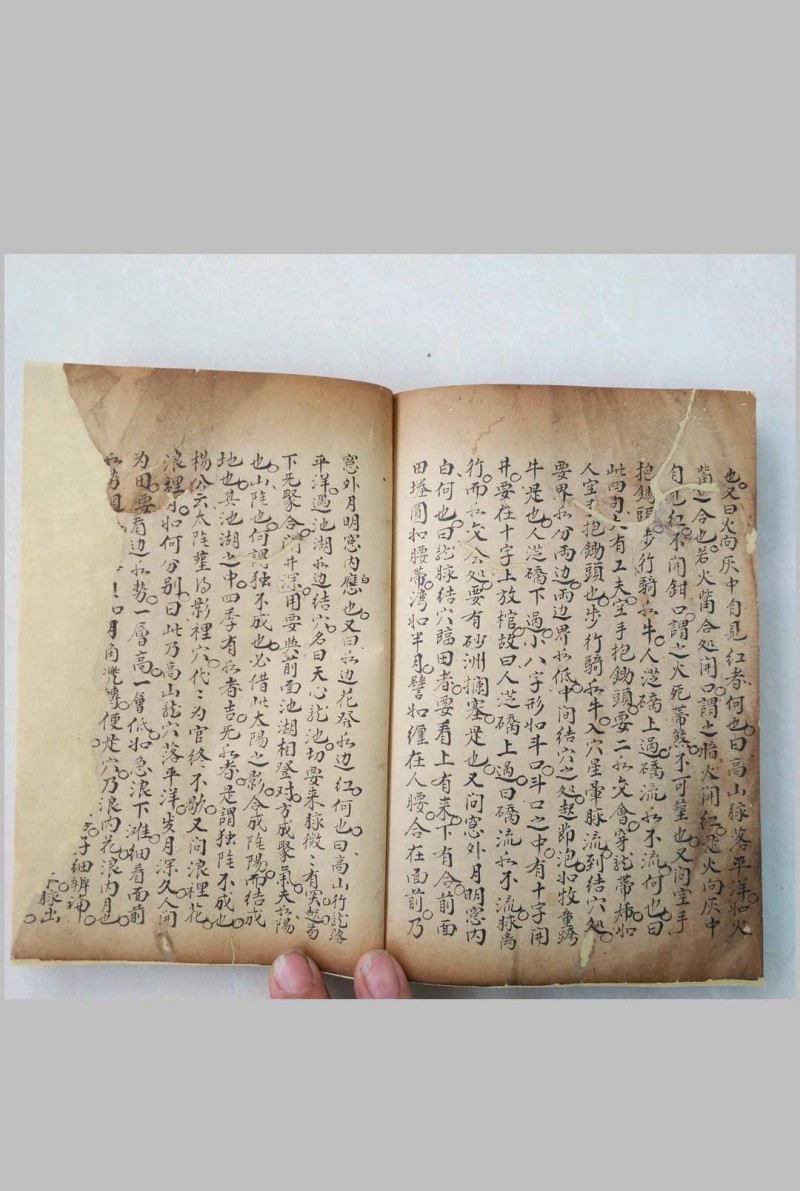 也又曰火向灰中自見紅者何也曰高山脉落平洋如火
嘴之合也若火嘴合処開口謂之暗火開紅是火向灰中
自見紅不開鉗口謂之火死蒂煞不可塟也又问空手
抱鋤頭步行騎水牛人従磽上過磽流水不流何也曰
此四句六有工夫空手抱鋤頭要二水交會穿龍帯如
人空手抱鋤頭也步行騎水牛入穴星暈脉流到结穴処
要界水分两边两边界水低中间结穴之処起節泡如牧童騎
牛是也人従磽下過小八字形如斗口斗口之中有十字開
井要在十字上放棺故曰人従磽上過曰磽流水不流脉
行而水交会処要有砂洲攔塞是也又问窓外月明窓内
白何也曰龍脉结穴臨田者要看上有来下有合前面
田塍圓如腰帯湾如半月譬如纏在人腰合在面前乃
窓外月明窓内應白也又曰水边花發水边红何也曰高山行龍落
平洋遇池湖水边结穴名曰天心龍池切要来脉微〻有突起為
下旡聚合开井深用要與前面池湖相登对方成聚氣夫水陽
也山陰也何謂独不成也必借此太陽之影合成陰陽而结成
地也其池湖之中四季有水者吉旡水者是謂独陰不成也
楊公云太陰塟淂影裡穴代〻为官终不歇又问浪裡花
浪裡如何分别曰此乃高山龍穴落平洋岁月深久人開
为田要看边水势一層高一層低如急浪下滩细看面前
四月角 便是穴乃浪内花浪内月也
子细辨
脉出